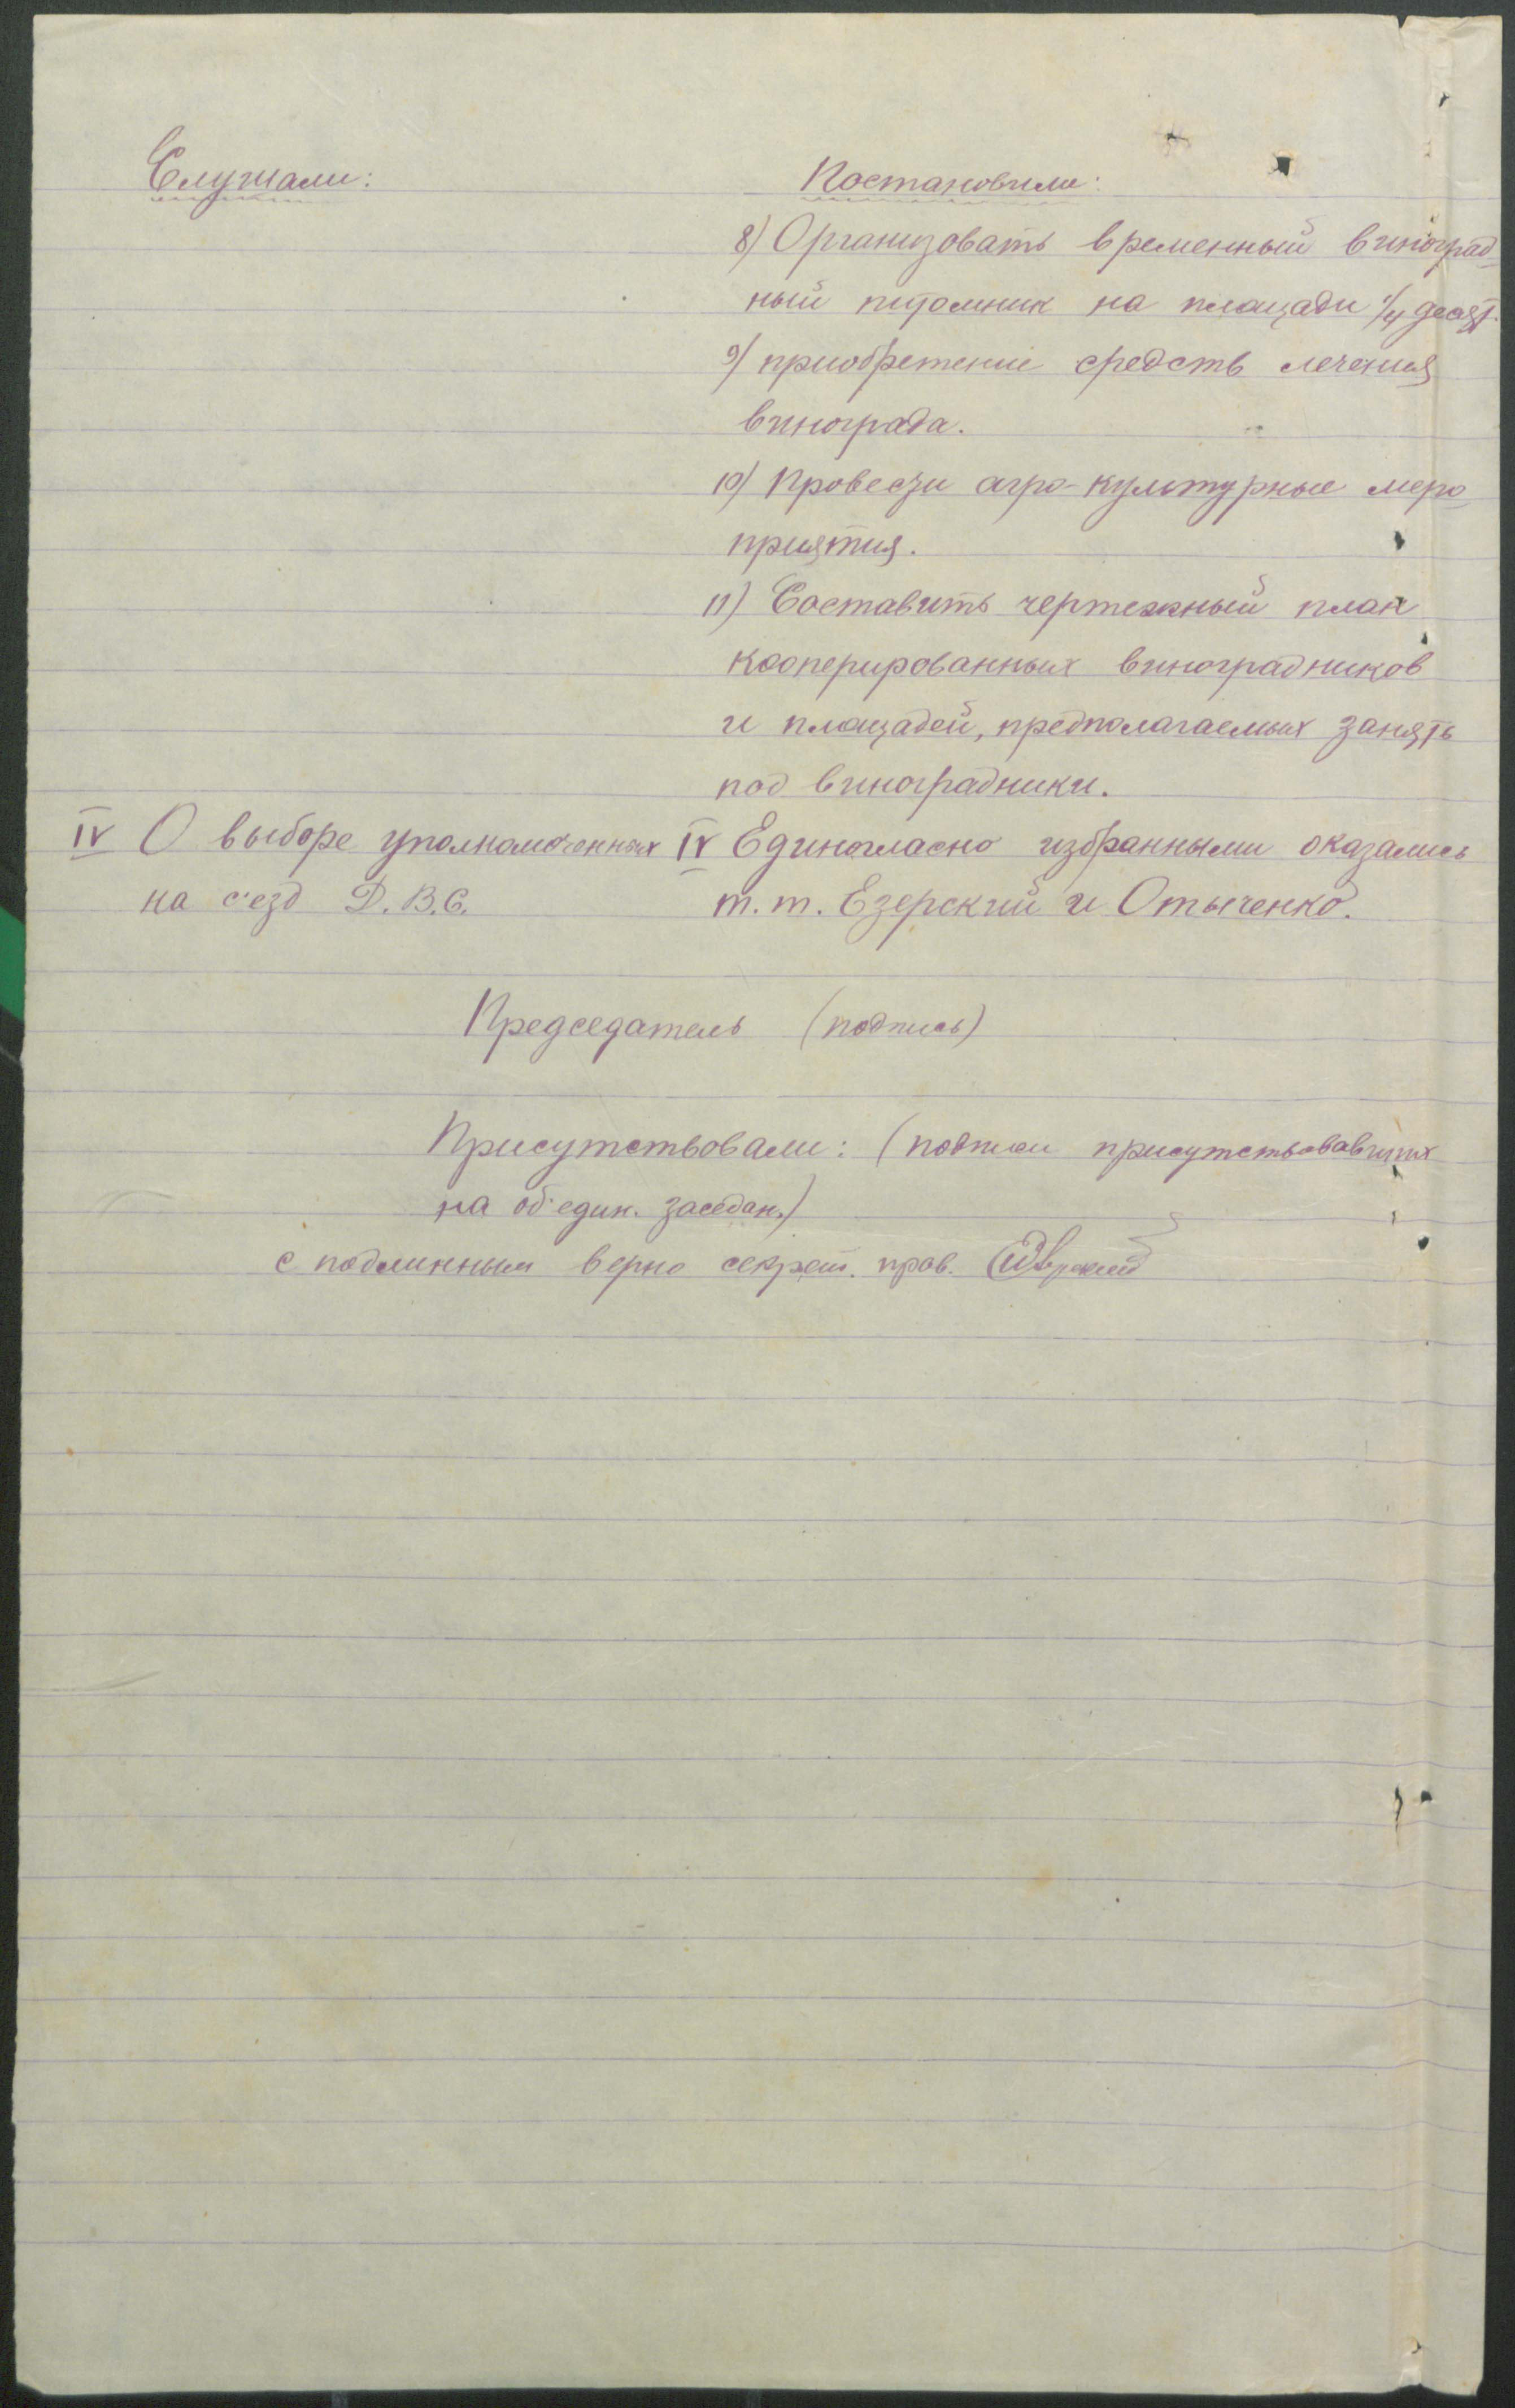 Слушали:
Постановили:
8) Организовать временный виноград-
ный питомник на площади 1/4 десят.
9) приобретение средств лечения
винограда.
10) Провести агро-культурные меро-
приятия.
11) Составить чертежный план
кооперированных виноградников
и площадей, предполагаемых занять
под виноградники.
IV О выборе уполномоченных
на с'езд Д.В.С.
IV Единогласно избранными оказались
т.т. Езерский и Отыченко.
Председатель (подпись)
Присутствовали: (подписи присутствовавших
на об'един. заседан.)
с подлинным верно секрет. прав.